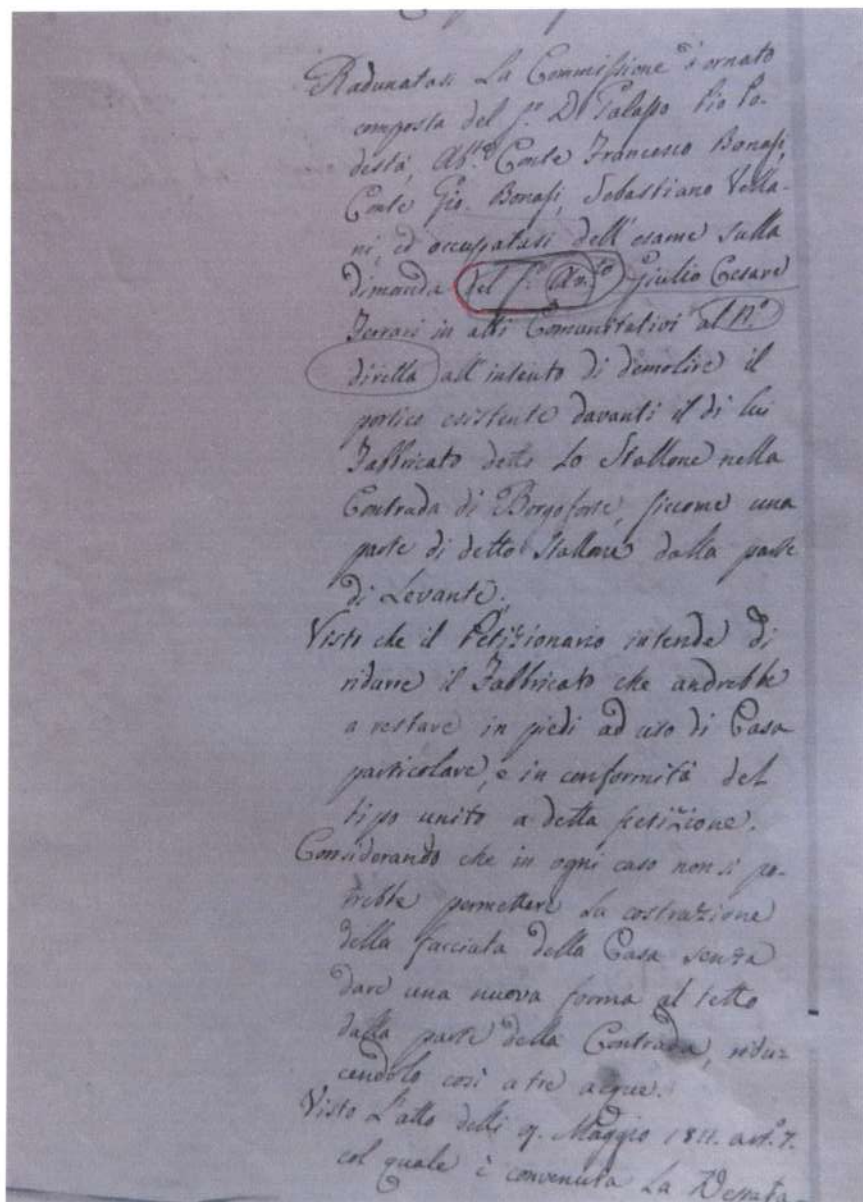 Radunatasi La Commissione d'ornato
composta del S.r D. Galasso Pio Po-
destà, Conte Francesco Bonasi,
Conte Gio. Bonasi, Sebastiano Vella-
ni, ed occupatasi dell'esame sulla
dimanda del S.r Giulio Cesare
Ferrari in atti Comunitativi al N.o
diretta all'intento di demolire il
portico esistente davanti il di lui
Fabbricato detto Lo Stallone nella
Contrada di Borgoforte, siccome una
parte di detto Stallone dalla parte
di Levante.
Visto che il Petizionario intende di
ridurre il Fabbricato che andrebbe
a restare in piedi ad uso di Casa
particolare, e in conformità del
tipo unito a detta petizione.
Considerando che in ogni caso non si po-
trebbe permettere La costruzione
della facciata della Casa senza
dare una nuova forma al tetto
dalla parte della Contrada, ridu-
cendolo così a tre acque.
Visto L'atto delli Maggio 1811. art. 7.
col quale è convenuta La